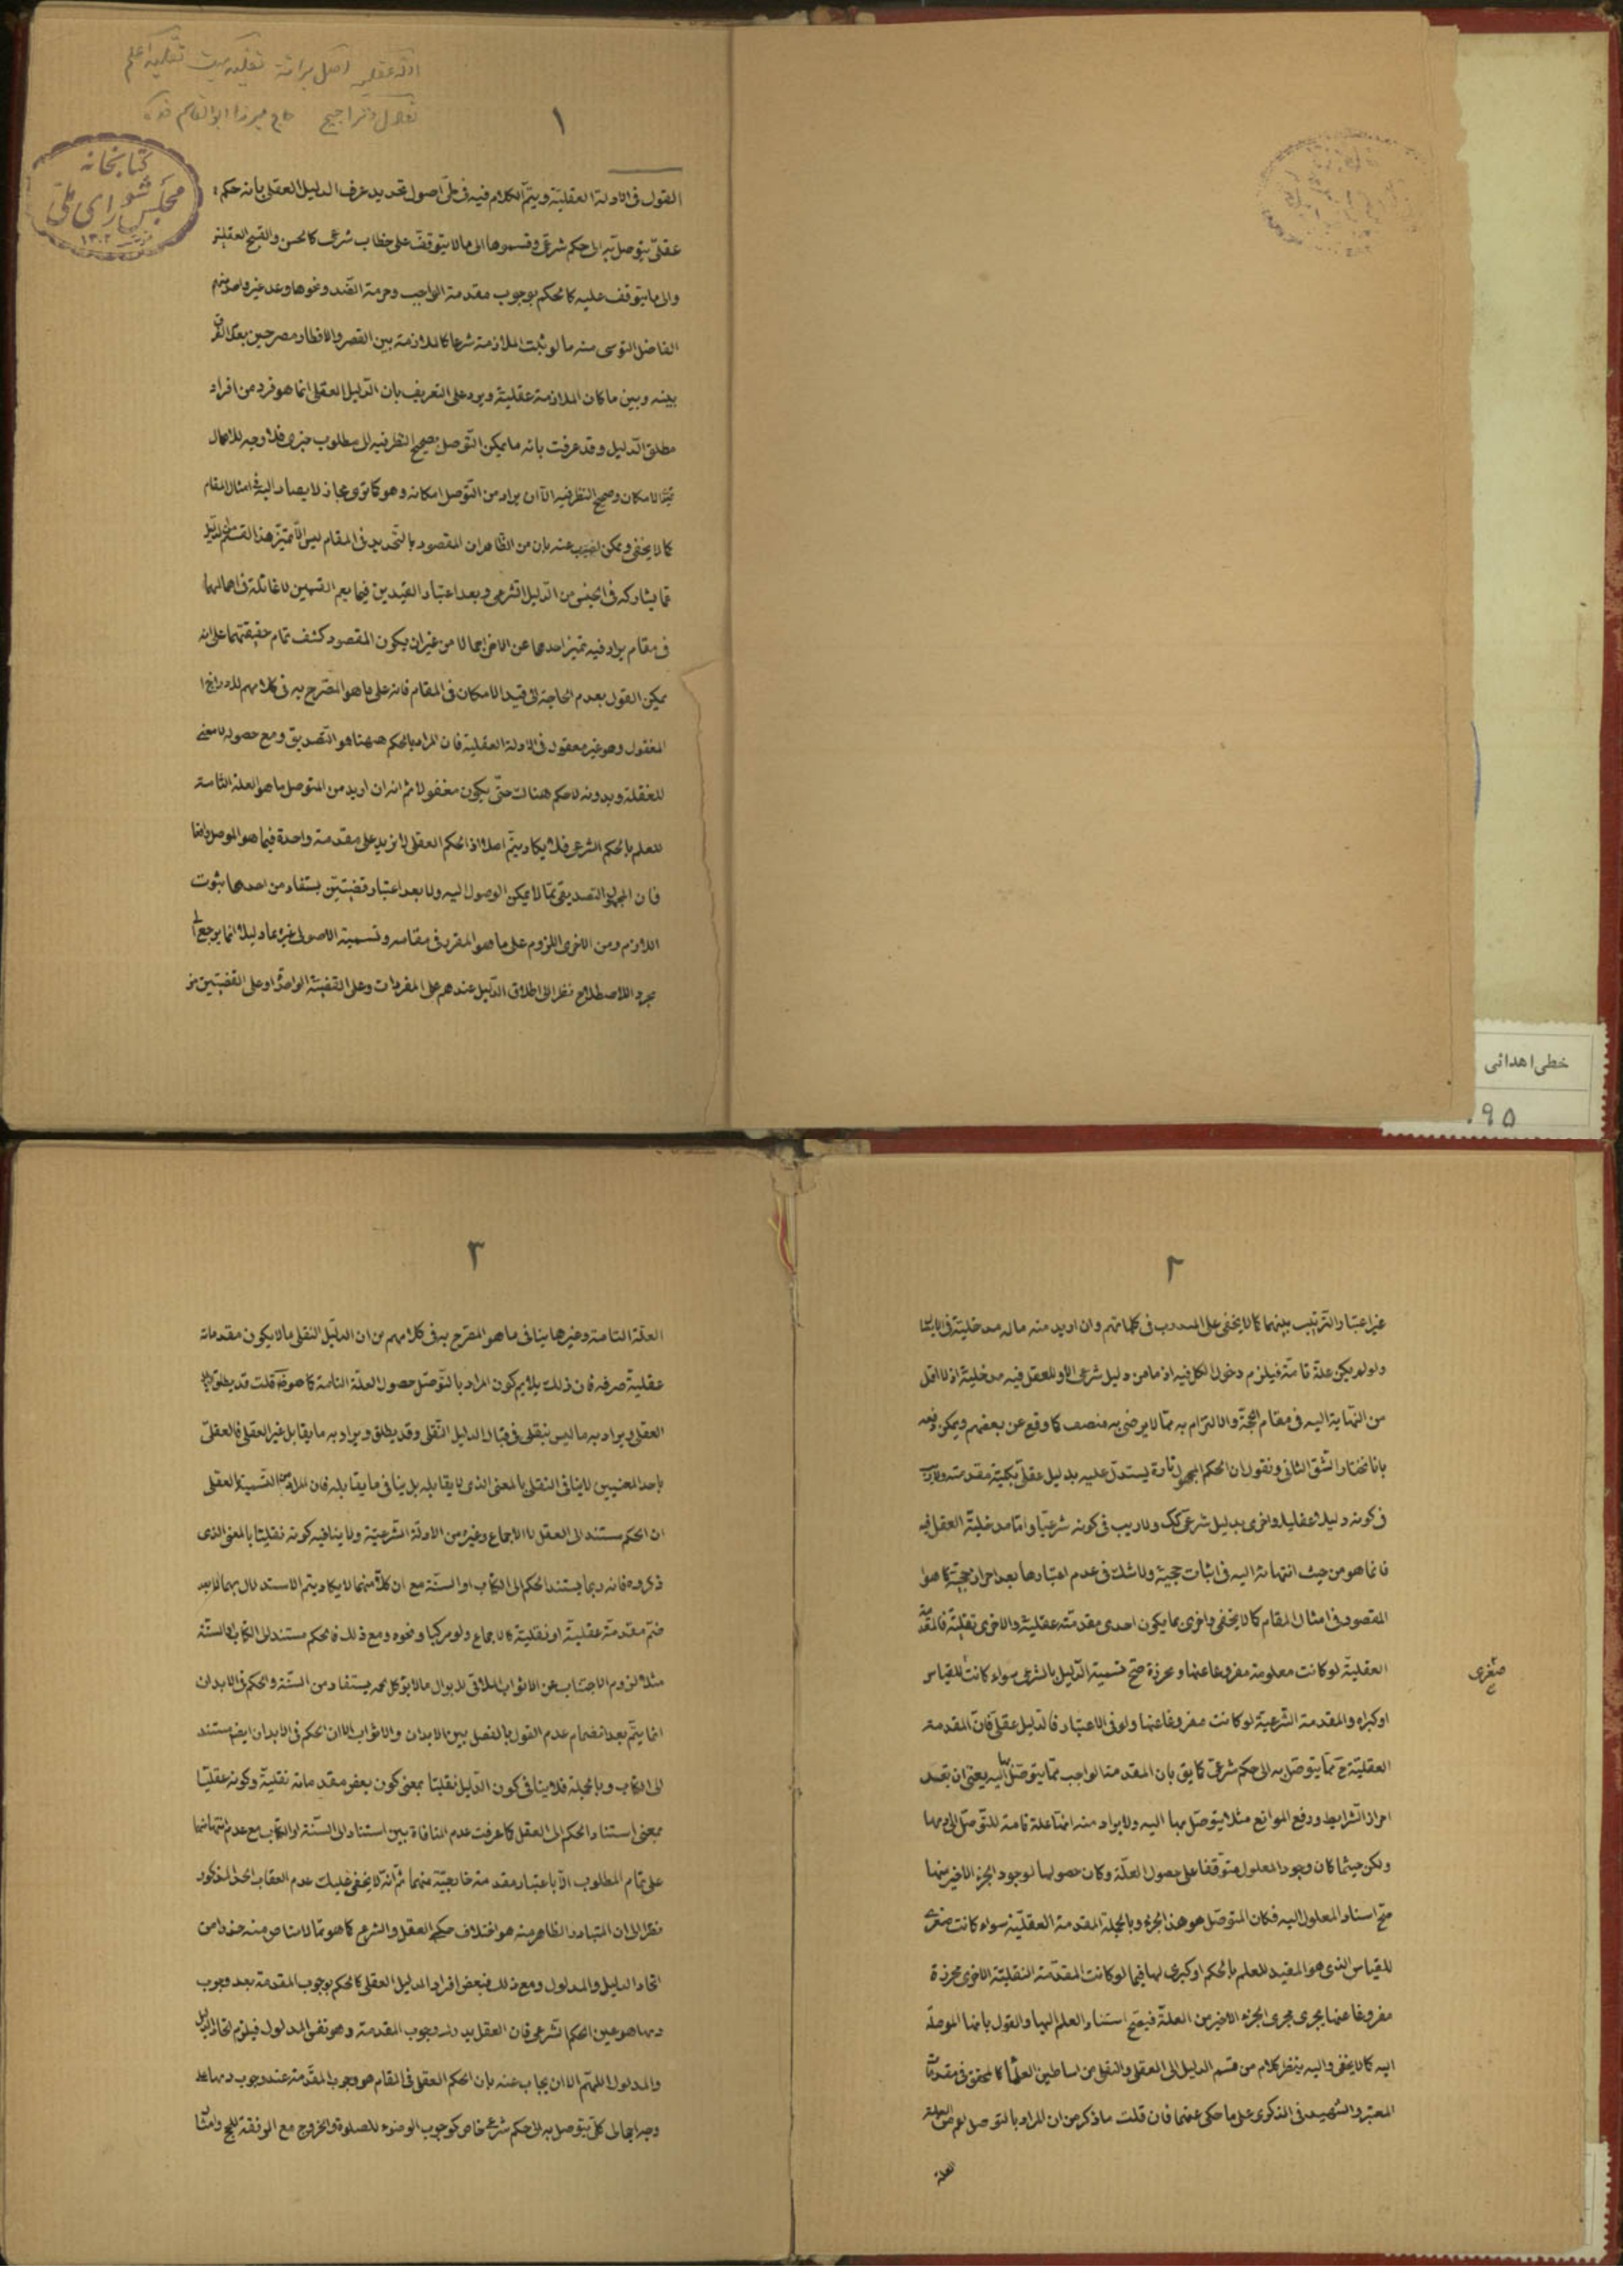 ادله عقلیه اصل برائة تقلید میت تقلید اعلم
تعادل و تراجیح حاج میرزا ابوالقاسم
۱
کتابخانه
مجلس شورای ملی
۱۳۰۲
القول فی الادلة العقلیة ویتم الکلام فیه فی طی اصول تحدید عرف الدلیل العقلی بانه حکم
عقلی یتوصل به الی حکم شرعی وقسموها الی مالا یتوقف علی خطاب شرعی کالحسن والقبح العقلیین
والی ما یتوقف علیه کالحکم بوجوب مقدمة الواجب وحرمة الضد ونحوها وعد غیر واحد منهم
الفاضل التونی منه ما لو ثبت الملازمة شرعا کالملازمة بین القصر والافطار مصرحین بعدم الفرق
بینه وبین ما کان الملازمة عقلیة ویرد علی التعریف بان الدلیل العقلی انما هو فرد من افراد
مطلق الدلیل وقد عرفت بانه ما یمکن التوصل بصحیح النظر فیه الی مطلوب خبری فلا وجه للاهمال
قید الامکان وصحیح النظر فیه الا ان یراد من التوصل امکانه وهو کما تری مجاز لا یصار الیه فی امثال المقام
کما لا یخفی ویمکن عنه بان من الظاهر ان المقصود بالتحدید فی المقام لیس الا تمیز هذا القسم من الدلیل
عما یشارکه فی الجنس من الدلیل الشرعی وبعد اعتبار القیدین فیما یعم القسمین لا غائلة فی اهمالهما
فی مقام یراد فیه تمیز احدهما عن الاخر اجمالا من غیر ان یکون المقصود کشف تمام حقیقتهما علی انه
یمکن القول بعدم الحاجة الی قید الامکان فی المقام فانه علی ما هو المصرح به فی کلامهم لادراج
المغفول وهو غیر معقول فی الادلة العقلیة فان المراد بالحکم ههنا هو التصدیق ومع حصوله لا معنی
للغفلة وبدونه لا حکم هناک حتی یکون مغفولا ثم انه ان ارید من المتوصل ما هو العلة التامة
للعلم بالحکم الشرعی فلا یکاد یتم اصلا اذ الحکم العقلی لا یزید علی مقدمة واحدة فیما هو الموصل واقعا
فان المجهول التصدیقی مما لا یمکن الوصول الیه ولا بعد اعتبار قضیتین یستفاد من احدهما ثبوت
اللازم ومن الاخری اللزوم علی ما هو المقرر فی مقامه وتسمیة الاصولی غیرهما دلیلا انما یرجع الی
مجرد الاصطلاح نظرا الی اطلاق الدلیل عندهم علی المفردات وعلی القضیة الواحدة او علی القضیتین من
خطی اهدائی
۹۵
۲
غیر اعتبار الترتیب بینهما کما لا یخفی علی المتدرب فی کلماتهم وان ارید منه ماله مدخلیة فی الایصال
ولو لم یکن علة تامة فیلزم دخول الکل فیه اذ ما من دلیل شرعی الا وللعقل فیه مدخلیة اذ لا اقل
من النهایة الیه فی مقام الحجة والالتزام به مما لا یرضی به منصف کما وقع عن بعضهم ویمکن دفعه
بانا نختار الشق الثانی ونقول ان الحکم المجهول تارة یستدل علیه بدلیل عقلی بکلیة مقدمتیه ولا ریب
فی کونه دلیلا عقلیا واخری بدلیل شرعی کک ولا ریب فی کونه شرعیا واما مدخلیة العقل فیه
فانما هو من حیث انتهائه الیه فی اثبات حجیة ولا شک فی عدم اعتبارها بعد احراز حجیته کما هو
المقصود فی امثال المقام کما لا یخفی واخری بما یکون احدی مقدمتیه عقلیة والاخری نقلیة فالمقدمة
العقلیة لو کانت معلومة مفروغا عنها ومحرزة صح تسمیة الدلیل بالشرعی سواء کانت للقیاس
صغری
او کبراه والمقدمة الشرعیة لو کانت مفروغا عنها ولو فی الاعتبار فالدلیل عقلی فان المقدمة
العقلیة ح مما یتوصل به الی حکم شرعی کما یق بان المقدمة الواجب مما یتوصل بها الیه یعنی ان بعد
احراز الشرایط ورفع الموانع مثلا یتوصل بها الیه ولا یراد منه انها علة تامة للتوصل الی ذیها
ولکن حیثما کان وجود المعلول متوقفا علی حصول العلة وکان حصولها لوجود الجزء الاخیر منها
صح اسناد المعلول الیه فکان المتوصل هو هذا الجزء وبالجملة المقدمة العقلیة سواء کانت صغری
للقیاس الذی هو المفید للعلم بالحکم او کبری لها فیما لو کانت المقدمة النقلیة الاخری محرزة
مفروغا عنها یجری مجری الجزء الاخیر من العلة فیصح استناد العلم الیها والقول بانها الموصلة
الیه کما لا یخفی والیه ینظر کلام من قسم الدلیل الی العقلی والنقلی من اساطین العلماء کالمحقق فی مقدمات
المعتبر والشهید فی الذکری علی ما حکی عنهما فان قلت ما ذکر من ان المراد بالتوصل لو هو
العلة
۳
العلة التامة وغیرها ینافی ما هو المصرح به فی کلامهم من ان الدلیل النقلی مالا یکون مقدماته
عقلیة صرفه فان ذلک یلایم کون المراد بالتوصل حصول العلة التامة کما هو قلت قد یطلق الدلیل
العقلی ویراد به ما لیس بنقلی فی قبال الدلیل النقلی وقد یطلق ویراد به ما یقابل غیر العقلی فالعقلی
باحد المعنیین لا ینافی النقلی بالمعنی الذی لا یقابله بل ینافی ما یقابله فان المراد من التسمیة العقلی
ان الحکم مستند الی العقل لا الاجماع وغیره من الادلة الشرعیة ولا ینافیه کونه نقلیا بالمعنی الذی
ذکروه فانه ربما یستند الحکم الی الکتاب او السنة مع ان کلا منهما لا یکاد یتم الاستدلال بهما الا بعد
ضم مقدمة عقلیة او نقلیة کالاجماع ولو مرکبا ونحوه ومع ذلک فالحکم مستند الی الکتاب او السنة
مثلا لزوم الاجتناب عن الاثواب الملاقی للابوال مالا یؤکل لحمه یستفاد من السنة والحکم فی الابدان
انما یتم بعد انضمام عدم القول بالفصل بین الابدان والاثواب الا ان الحکم فی الابدان ایضا مستند
الی الکتاب وبالجملة فلا ینافی کون الدلیل نقلیا بمعنی کون بعض مقدماته نقلیة وکونه عقلیا
بمعنی استناد الحکم الی العقل کما عرفت عدم المنافاة بین استناد الی السنة او الکتاب مع عدم انتهائهما
علی تمام المطلوب الا باعتبار مقدمة خارجیة منهما ثم انه لا یخفی علیک عدم العقاب الحد المذکور
نظرا الی ان المتبادر الظاهر منه هو اختلاف حکم العقل والشرع کما هو مما لا مناص منه حذرا من
اتحاد الدلیل والمدلول ومع ذلک فبعض افراد الدلیل العقلی کالحکم بوجوب المقدمة بعد وجوب
ذیها هو عین الحکم الشرعی فان العقل یدرک وجوب المقدمة وهو نفس المدلول فیلزم اتحاد الدلیل
والمدلول اللهم الا ان یجاب عنه بان الحکم العقلی فی المقام هو وجوب المقدمة عند وجوب ذیها علی
وجه اجمالی کلی یتوصل به الی حکم شرعی خاص کوجوب الوضوء للصلوة والخروج مع الرفقة للحج وامثالها